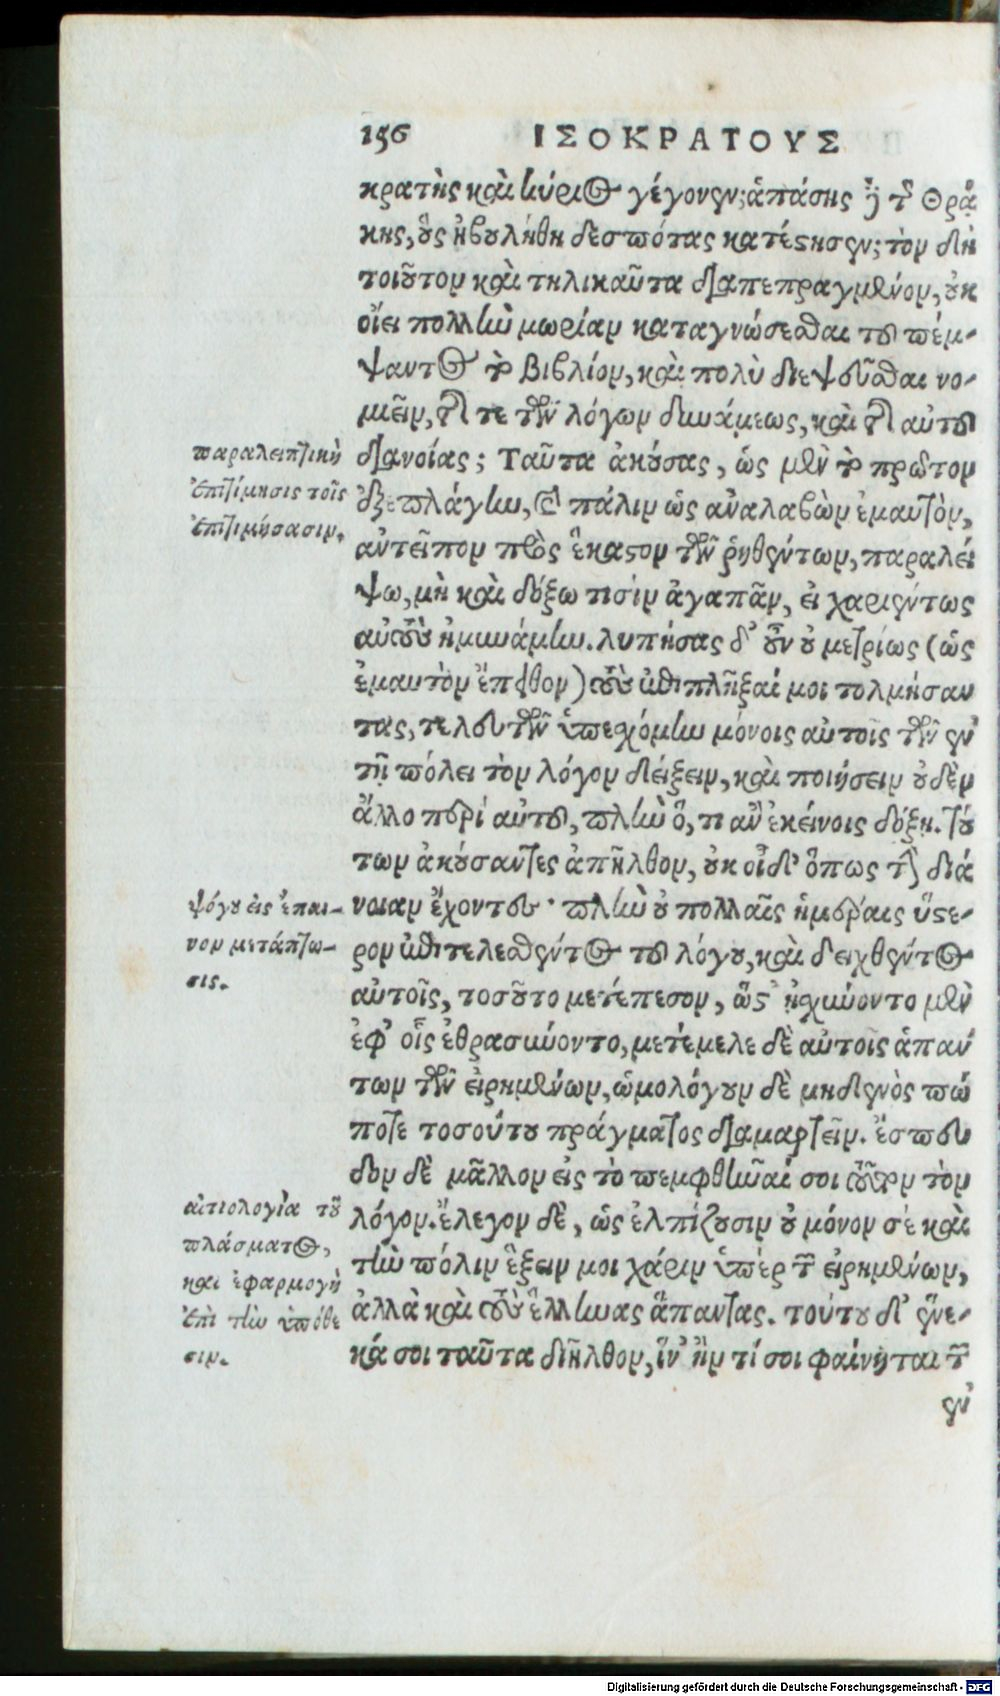 156 ΙΣΟΚΡΑΤΟΥΣ
κρατὴς καὶ κύριος γέγονεν; ἁπάσης δὲ τῆς Θρᾴ
κης, οὓς ἠβουλήθη δεσπότας κατέστησεν; τὸν δὴ
τοιοῦτον καὶ τηλικαῦτα διαπεπραγμένον, οὐκ
οἴει πολλὴν μωρίαν καταγνώσεσθαι τοῦ πέμ-
ψαντος τὸ βιβλίον, καὶ πολὺ διεψεῦσθαι νο-
μιεῖν, τῆς τε τῶν λόγων δυνάμεως, καὶ τῆς αὐτοῦ
παραλειπτικὴ
διανοίας; Ταῦτα ἀκούσας, ὡς μὲν τὸ πρῶτον
ἐπιτίμησις τοῖς
ἐξεπλάγην, καὶ πάλιν ὡς ἀναλαβὼν ἐμαυτὸν,
ἐπιτιμήσασιν.
ἀντεῖπον πρὸς ἕκαστον τῶν ῥηθέντων, παραλεί
ψω, μὴ καὶ δόξω τισὶν ἀγαπᾶν, εἰ χαριέντως
αὐτοὺς ἠμυνάμην. λυπήσας δ' οὖν οὐ μετρίως (ὡς
ἐμαυτὸν ἔπειθον) τοὺς ἐπιπλῆξαί μοι τολμήσαν
τας, τελευτῶν ὑπεσχόμην μόνοις αὐτοῖς τῶν ἐν
τῇ πόλει τὸν λόγον δείξειν, καὶ ποιήσειν οὐδὲν
ἄλλο περὶ αὐτοῦ, πλὴν ὅ, τι ἂν ἐκείνοις δόξῃ. τού
των ἀκούσαντες ἀπῆλθον, οὐκ οἶδ' ὅπως τὴν διά
ψόγου εἰς ἔπαι-
νοιαν ἔχοντες· πλὴν οὐ πολλαῖς ἡμέραις ὕστε-
νον μετάπτω-
ρον ἐπιτελεσθέντος τοῦ λόγου, καὶ δειχθέντος
σις.
αὐτοῖς, τοσοῦτο μετέπεσον, ὥστ' ᾐσχύνοντο μὲν
ἐφ' οἷς ἐθρασύνοντο, μετέμελε δὲ αὐτοῖς ἁπάν
των τῶν εἰρημένων, ὡμολόγουν δὲ μηδενὸς πώ
ποτε τοσούτου πράγματος διαμαρτεῖν. ἔσπευ
δον δὲ μᾶλλον εἰς τὸ πεμφθῆναί σοι τοῦτον τὸν
αἰτιολογία τοῦ
λόγον. ἔλεγον δὲ, ὡς ἐλπίζουσιν οὐ μόνον σὲ καὶ
πλάσματος,
τὴν πόλιν ἕξειν μοι χάριν ὑπὲρ τῶν εἰρημένων,
καὶ ἐφαρμογὴ
ἐπὶ τὴν ὑπόθε
ἀλλὰ καὶ τοὺς ἕλληνας ἅπαντας. τούτου δ' ἕνε-
σιν.
κά σοι ταῦτα διῆλθον, ἵν' ἤν τί σοι φαίνηται τῶν
ἐν
Digitalisierung gefördert durch die Deutsche Forschungsgemeinschaft - DFG